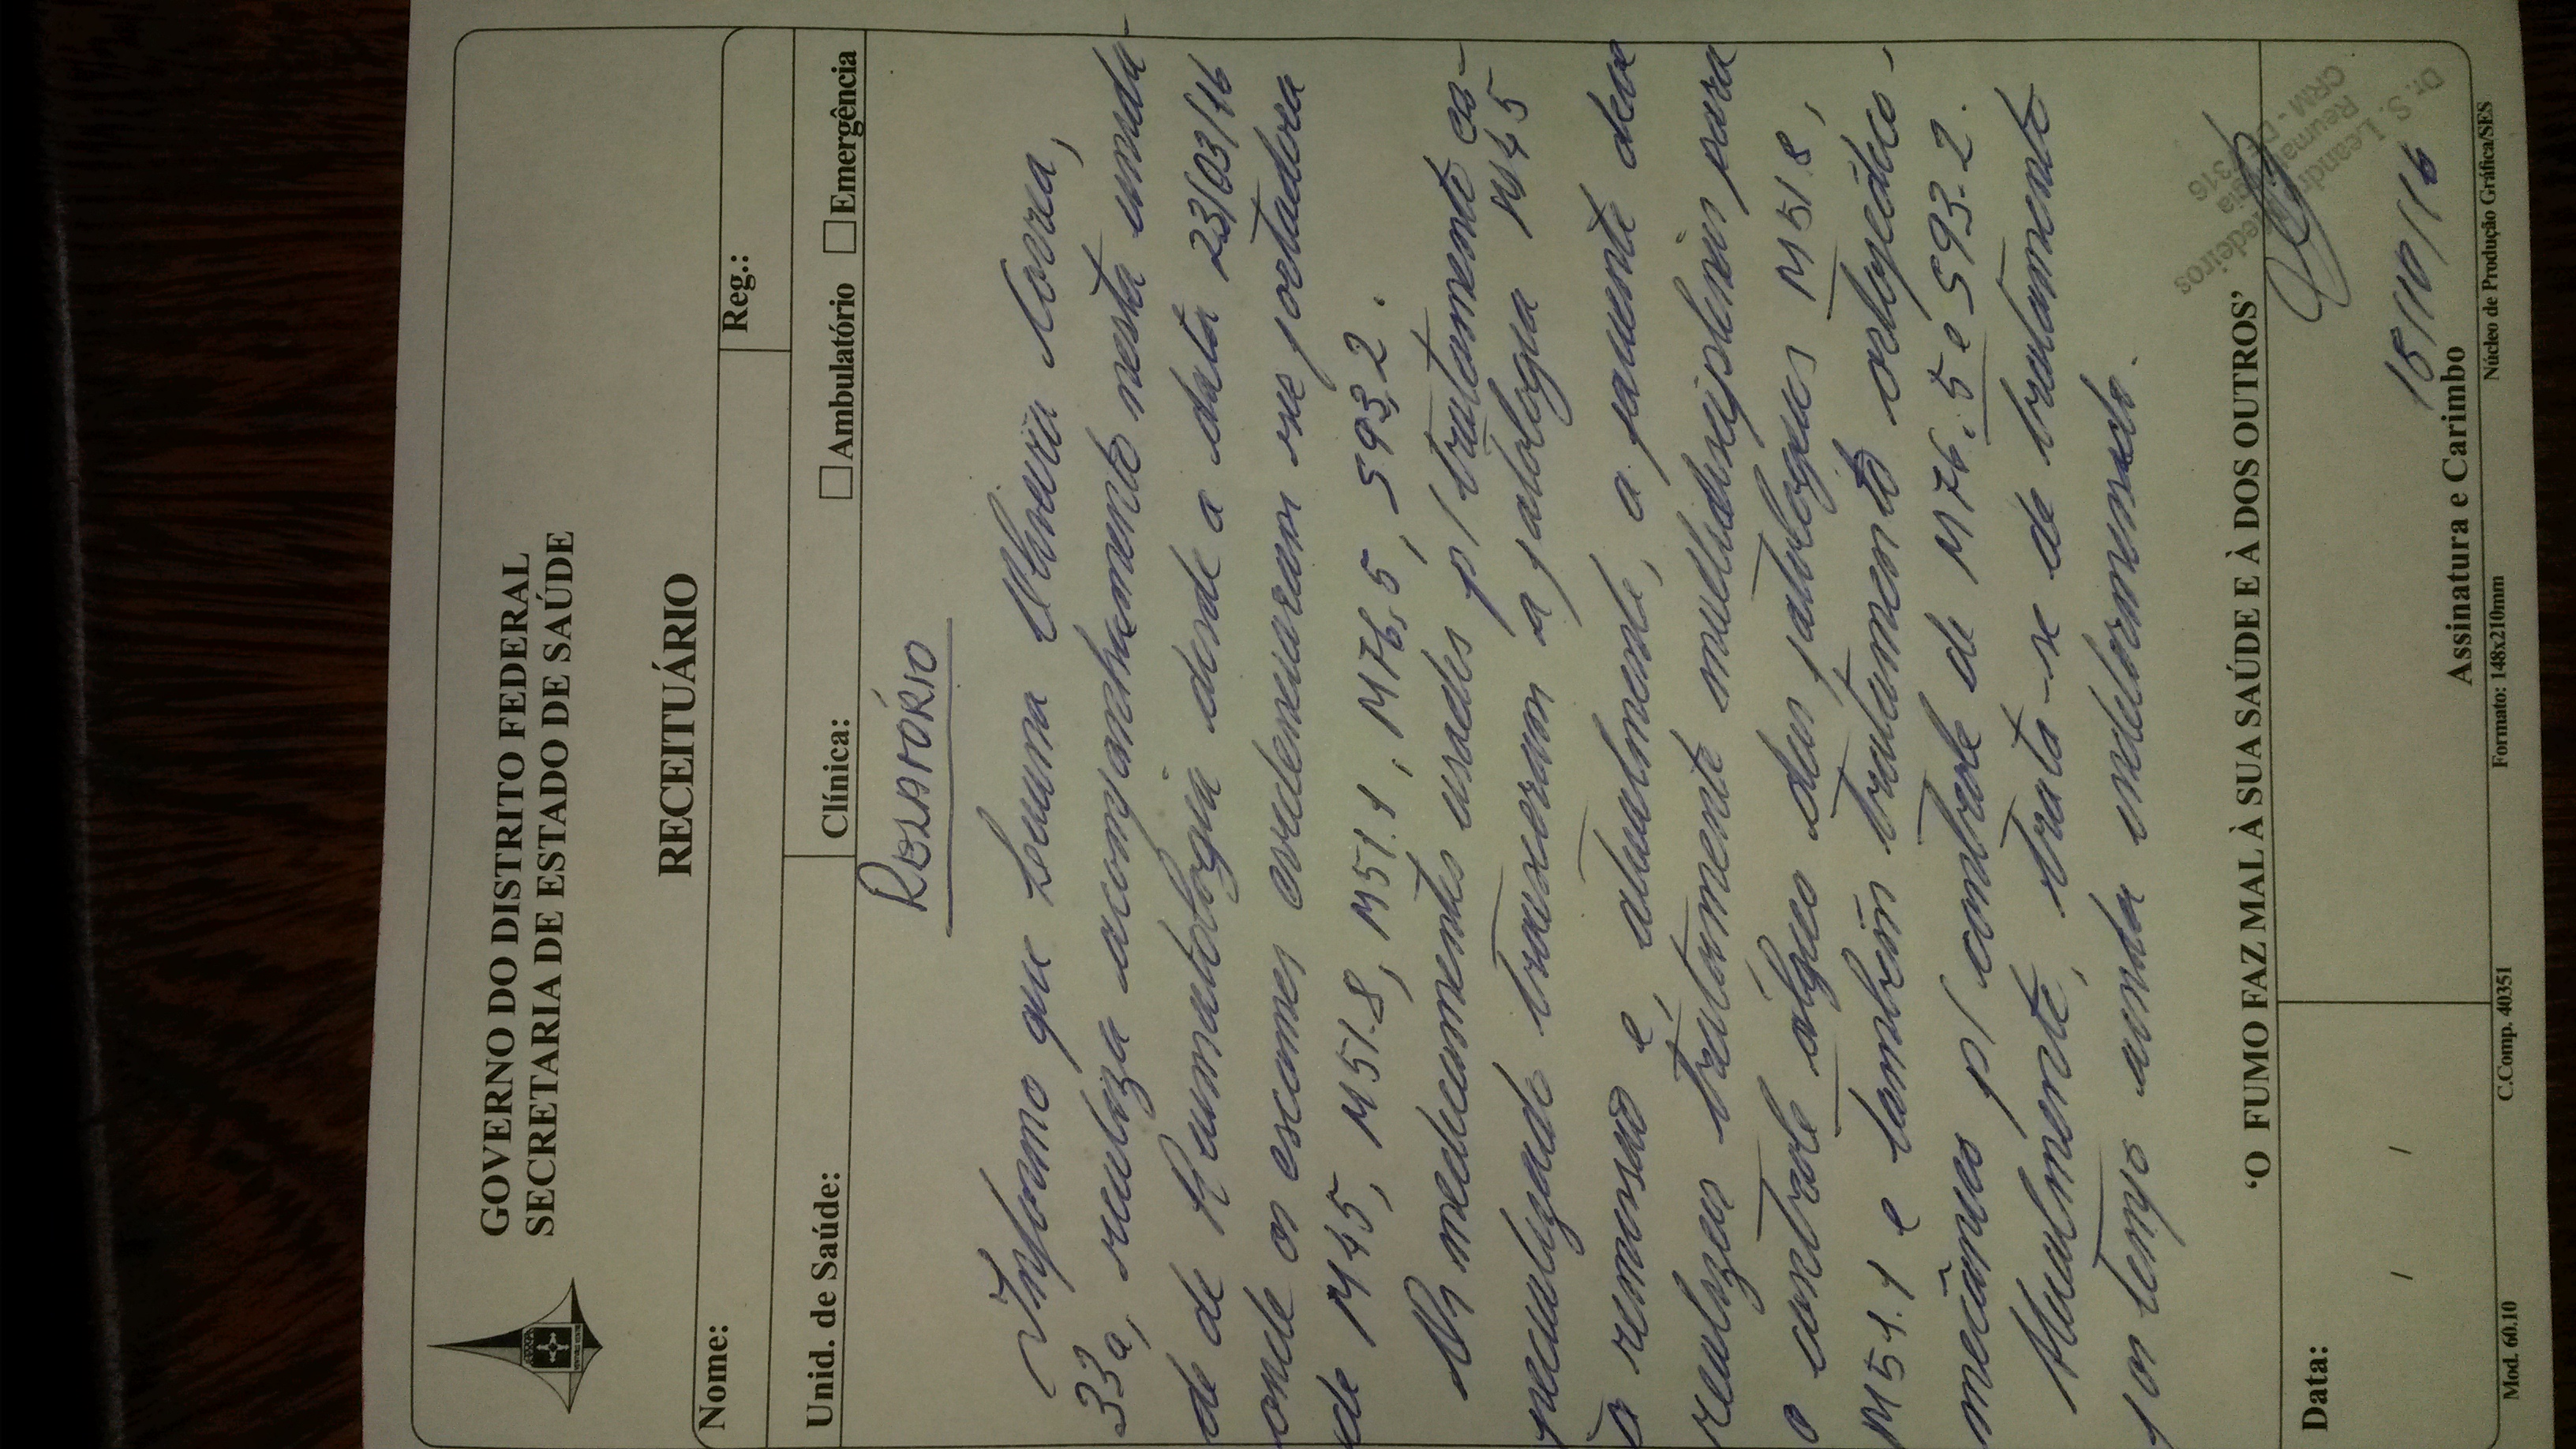 GOVERNO DO DISTRITO FEDERAL
SECRETARIA DE ESTADO DE SAÚDE
RECEITUÁRIO
Nome:
Reg.:
Unid. de Saúde:
Clínica:
Ambulatório
Emergência
RELATÓRIO
Informo que Luana Oliveira Correa,
33a, realiza acompanhamento nesta unida-
de de Reumatologia desde a data 23/03/16
onde os exames evidenciaram ser portadora
de M45, M51.8, M51.1, M76.5, S93.2.
Os medicamentos usados p/ tratamento es-
pecializado trouxeram a patologia M45
à remissão e, atualmente, a paciente deve
realizar tratamento multidisciplinar para
o controle álgico das patologias M51.8,
M51.1 e também tratamento ortopédico-
mecânico p/ controle de M76.5 e S93.2.
Atualmente, trata-se de tratamento
por tempo ainda indeterminado.
'O FUMO FAZ MAL À SUA SAÚDE E À DOS OUTROS'
Data:
/ /
Dr. S. Medeiros
CRM - DF
18/10/16
Assinatura e Carimbo
Mod. 60.10
C.Comp. 40351
Formato: 148x210mm
Núcleo de Produção Gráfica/SES